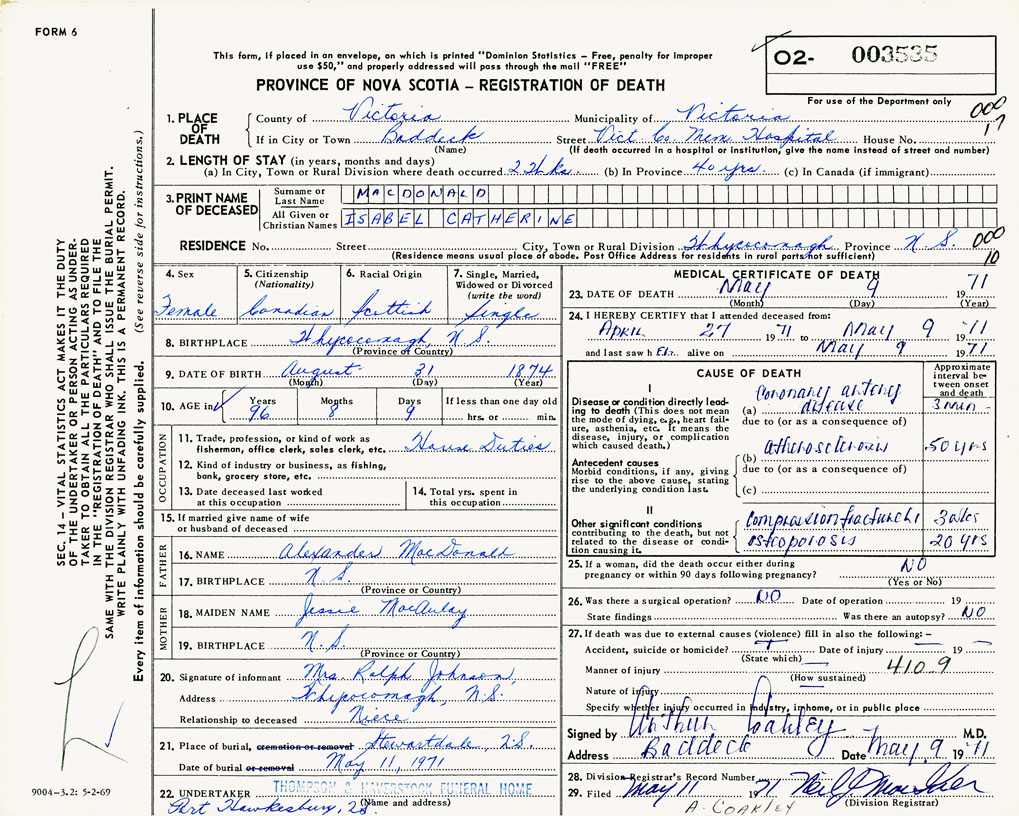 FORM 6
This form, if placed in an envelope, on which is printed "Dominion Statistics – Free, penalty for improper
use $50," and properly addressed will pass through the mail "FREE"
PROVINCE OF NOVA SCOTIA – REGISTRATION OF DEATH
O2- 003535
For use of the Department only
000
17
1. PLACE OF DEATH
County of Victoria Municipality of Victoria
If in City or Town Baddeck Street Vict. Co. Mem. Hospital House No.
(Name) (If death occurred in a hospital or institution, give the name instead of street and number)
2. LENGTH OF STAY (in years, months and days)
(a) In City, Town or Rural Division where death occurred 2 Wks. (b) In Province 40 yrs. (c) In Canada (if immigrant)
3. PRINT NAME OF DECEASED
Surname or Last Name MACDONALD
All Given or Christian Names ISABEL CATHERINE
RESIDENCE No. Street City, Town or Rural Division Whycocomagh Province N.S. 000
10
(Residence means usual place of abode. Post Office Address for residents in rural parts not sufficient)
4. Sex
Female
5. Citizenship
(Nationality)
Canadian
6. Racial Origin
Scottish
7. Single, Married,
Widowed or Divorced
(write the word)
Single
8. BIRTHPLACE Whycocomagh, N.S.
(Province or Country)
9. DATE OF BIRTH August 31 1874
(Month) (Day) (Year)
10. AGE in Years Months Days If less than one day old
96 8 9 hrs. or min.
OCCUPATION
11. Trade, profession, or kind of work as
fisherman, office clerk, sales clerk, etc. House Duties
12. Kind of industry or business, as fishing,
bank, grocery store, etc.
13. Date deceased last worked
at this occupation
14. Total yrs. spent in
this occupation
15. If married give name of wife
or husband of deceased
FATHER
16. NAME Alexander MacDonald
17. BIRTHPLACE N.S.
(Province or Country)
MOTHER
18. MAIDEN NAME Jessie MacAulay
19. BIRTHPLACE N.S.
(Province or Country)
20. Signature of informant Mrs. Ralph Johnson,
Address Whycocomagh, N.S.
Relationship to deceased Niece
21. Place of burial, cremation or removal Stewartdale, N.S.
Date of burial or removal May 11, 1971
22. UNDERTAKER THOMPSON & HAVERSTOCK FUNERAL HOME
(Name and address)
Port Hawkesbury, N.S.
MEDICAL CERTIFICATE OF DEATH
23. DATE OF DEATH May 9 1971
(Month) (Day) (Year)
24. I HEREBY CERTIFY that I attended deceased from:
April 27 1971 to May 9 1971
and last saw her alive on May 9 1971
CAUSE OF DEATH
Approximate
interval be-
tween onset
and death
I
Disease or condition directly lead-
ing to death (This does not mean
the mode of dying, e.g., heart fail-
ure, asthenia, etc. It means the
disease, injury, or complication
which caused death.)
(a) Coronary artery
disease 3 min -
due to (or as a consequence of)
Antecedent causes
Morbid conditions, if any, giving
rise to the above cause, stating
the underlying condition last.
(b) atherosclerosis 50 yrs
due to (or as a consequence of)
(c)
II
Other significant conditions
contributing to the death, but not
related to the disease or condi-
tion causing it.
Compression fracture 3 wks
osteoporosis 20 yrs
25. If a woman, did the death occur either during
pregnancy or within 90 days following pregnancy? NO
(Yes or No)
26. Was there a surgical operation? NO Date of operation 19
State findings Was there an autopsy? NO
27. If death was due to external causes (violence) fill in also the following: –
Accident, suicide or homicide? Date of injury 19
(State which)
Manner of injury 410.9
(How sustained)
Nature of injury
Specify whether injury occurred in industry, in home, or in public place
Signed by Arthur Coakley M.D.
Address Baddeck Date May 9 1971
28. Division Registrar's Record Number
29. Filed May 11 1971
(Division Registrar)
A. COAKLEY
SEC. 14 – VITAL STATISTICS ACT MAKES IT THE DUTY
OF THE UNDERTAKER OR PERSON ACTING AS UNDER-
TAKER TO OBTAIN ALL THE PARTICULARS REQUIRED
IN THE "REGISTRATION OF DEATH" AND TO FILE THE
SAME WITH THE DIVISION REGISTRAR WHO SHALL ISSUE THE BURIAL PERMIT.
WRITE PLAINLY WITH UNFADING INK. THIS IS A PERMANENT RECORD.
Every item of information should be carefully supplied. (See reverse side for instructions.)
9004-3.2: 5-2-69